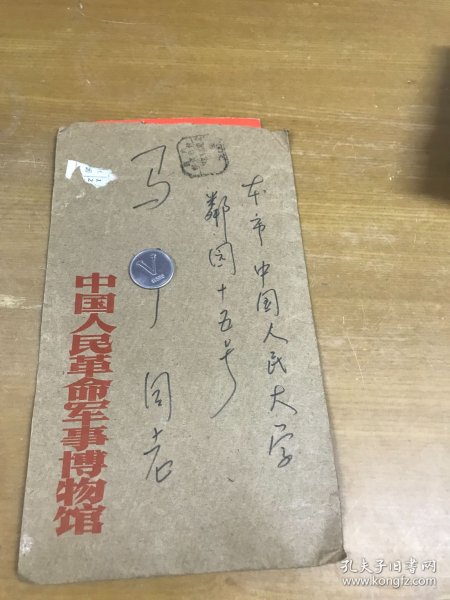 本市中国人民大学
邻园十五号
马
同志
中国人民革命军事博物馆
孔夫子旧书网
www.kongfz.com